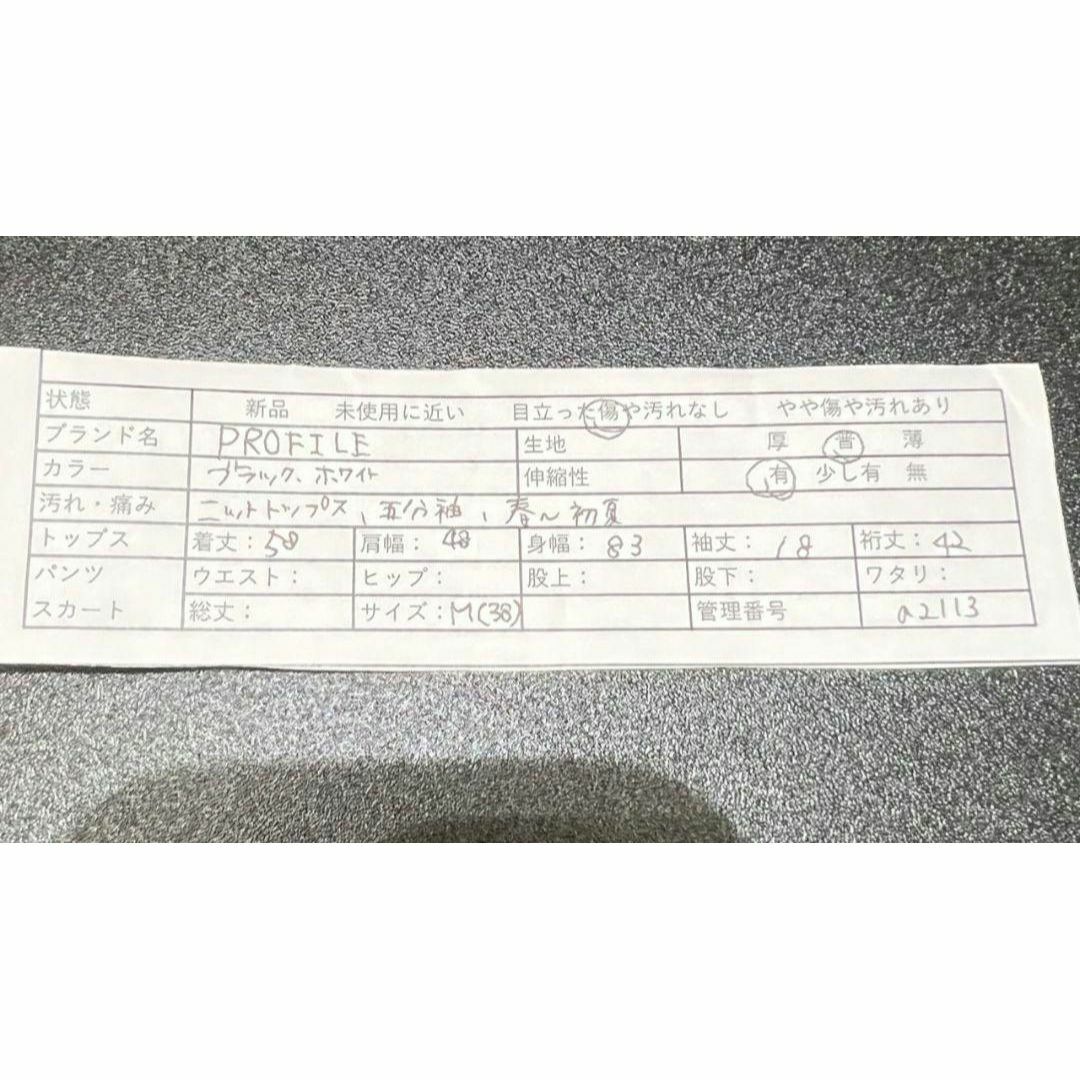 状態 新品 未使用に近い 目立った傷や汚れなし やや傷や汚れあり
ブランド名 PROFILE 生地 厚 普 薄
カラー ブラック、ホワイト 伸縮性 有 少し有 無
汚れ・痛み ニットトップス、五分袖、春~初夏
トップス 着丈:58 肩幅:48 身幅:83 袖丈:18 裄丈:42
パンツ ウエスト: ヒップ: 股上: 股下: ワタリ:
スカート 総丈: サイズ:M(38) 管理番号 a2113